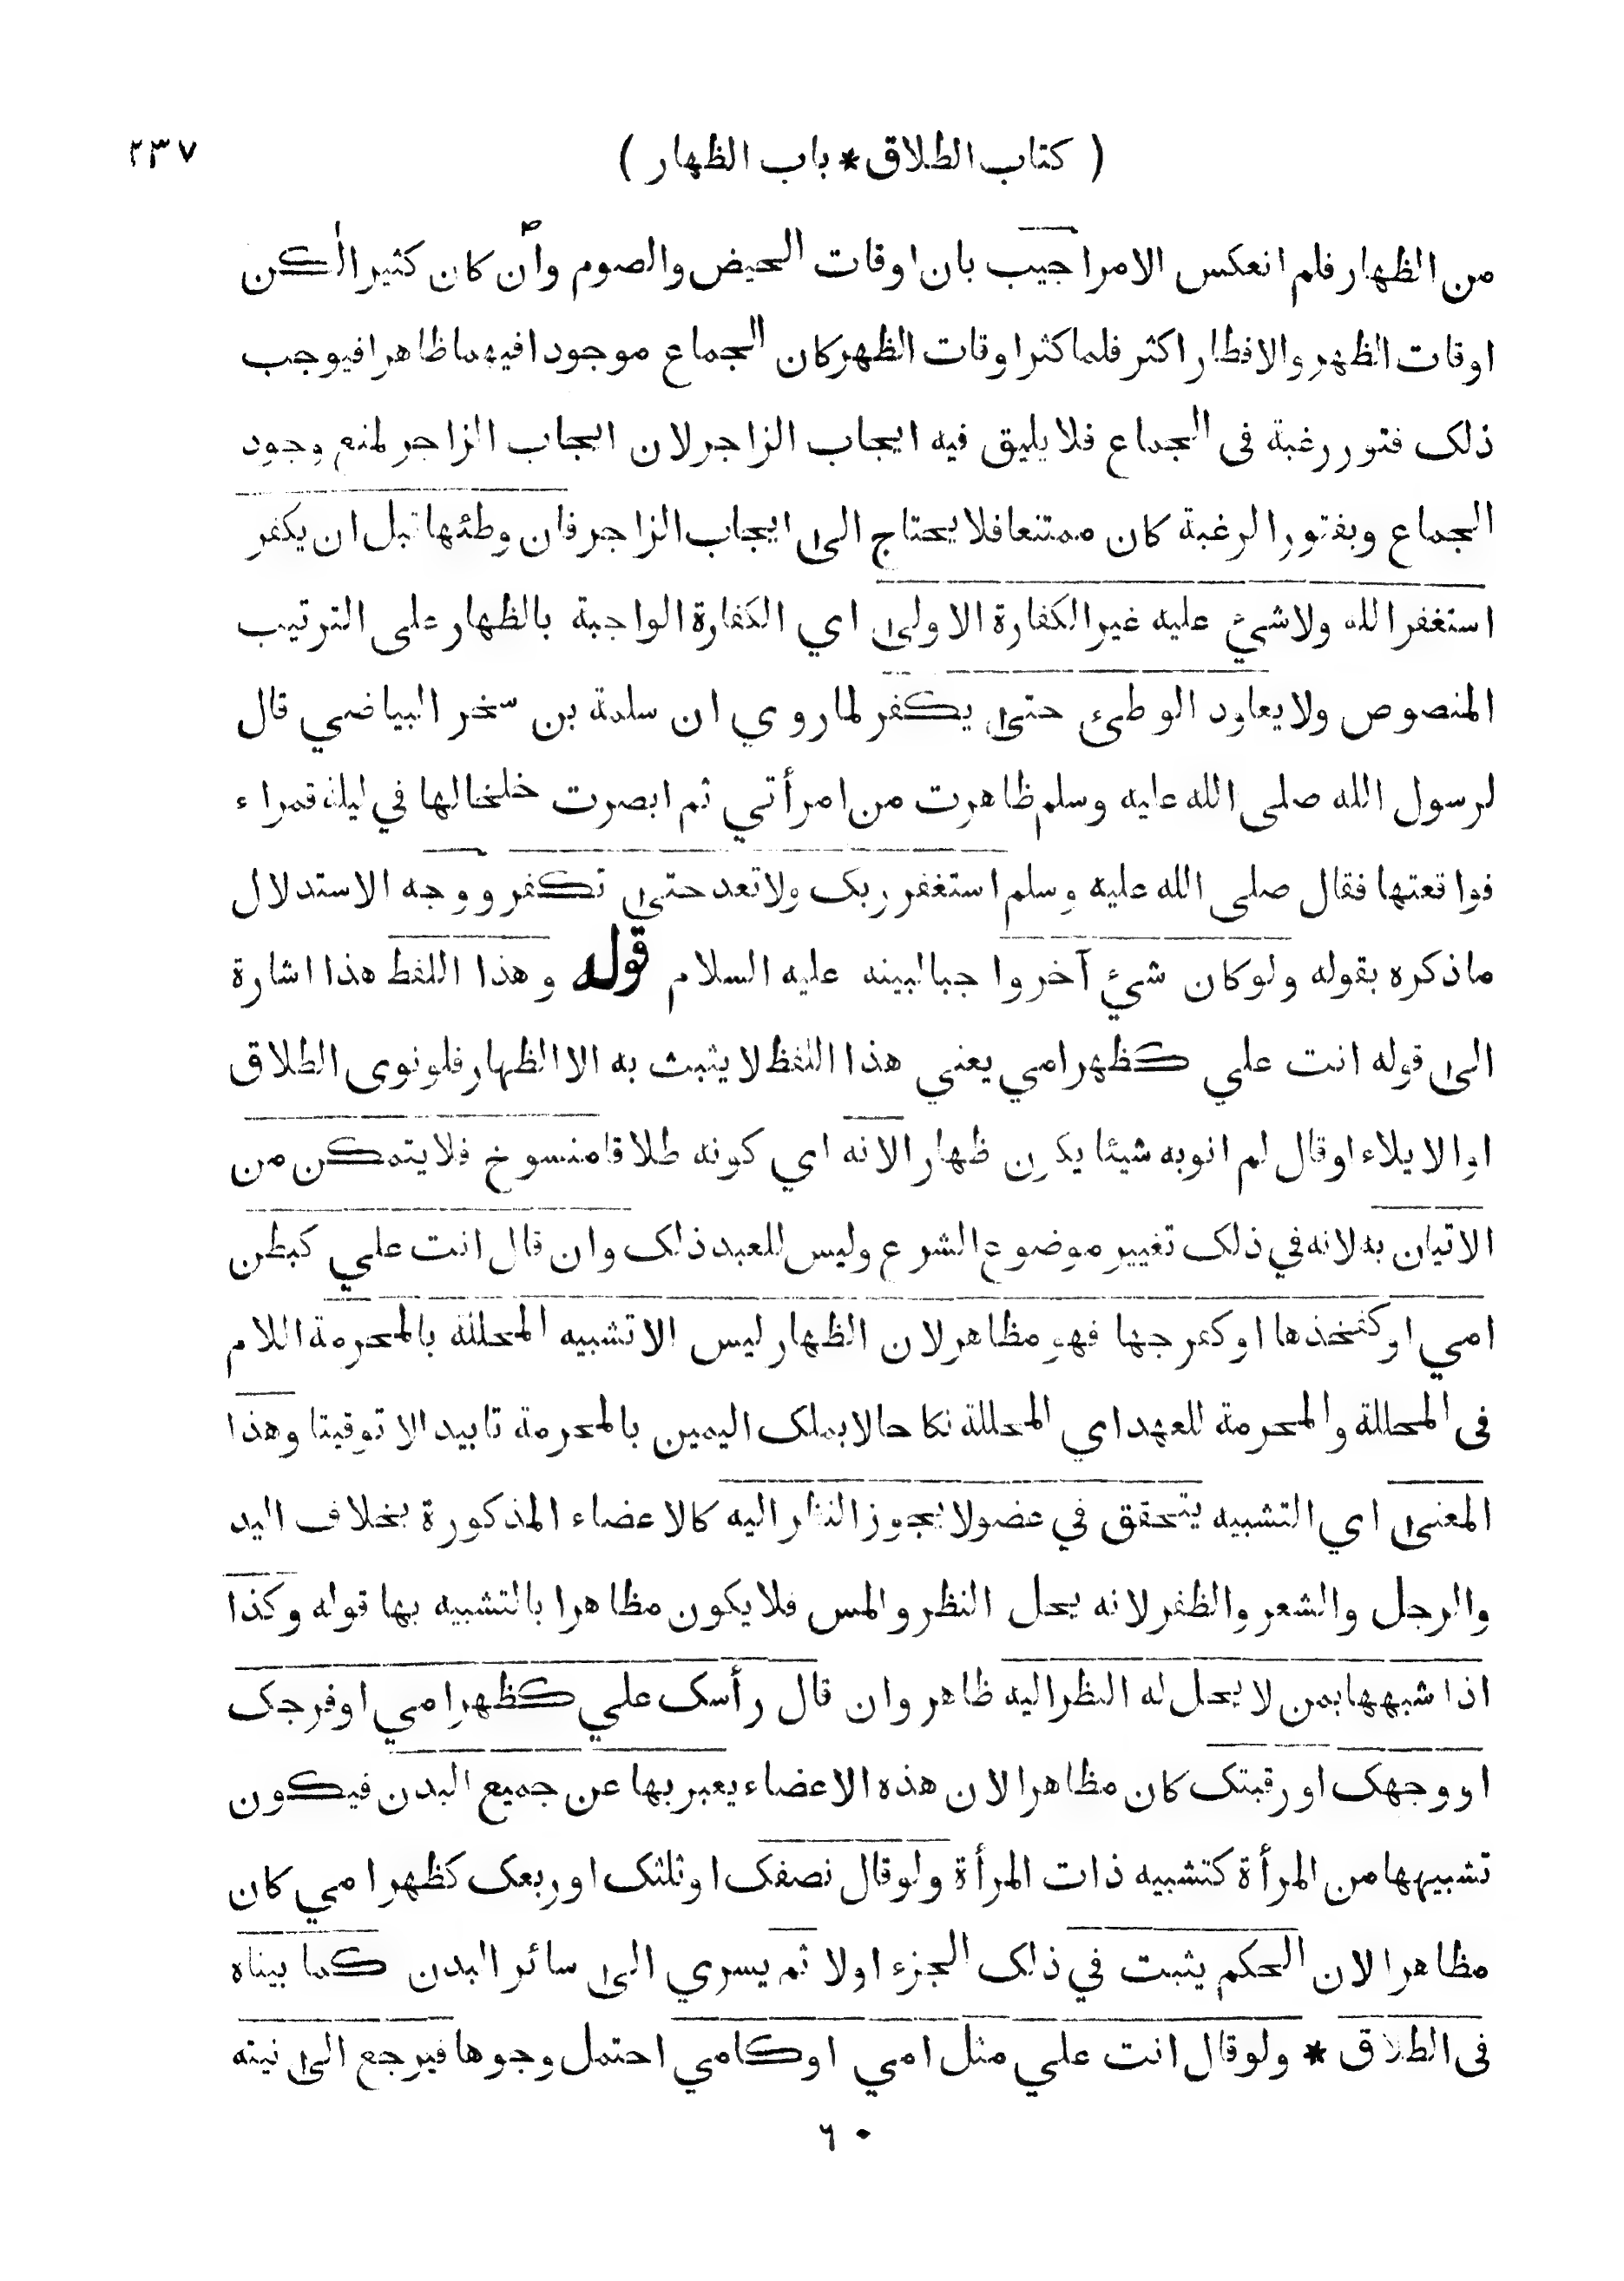 ( كتاب الطلاق * باب الظهار )
٢٣٧
من الظهار فلم انعكس الامر اجيب بان اوقات الحيض والصوم وان كان كثيرا لكن
اوقات الظهر والافطار اكثر فلما كثر اوقات الظهر كان الجماع موجودا فيهما ظاهرا فيوجب
ذلك فتور رغبة فى الجماع فلا يليق فيه ايجاب الزاجر لان ايجاب الزاجر لمنع وجود
الجماع وبفتور الرغبة كان ممتنعا فلا يحتاج الى ايجاب الزاجر فان وطئها قبل ان يكفر
استغفر الله ولا شيئ عليه غير الكفارة الاولى اي الكفارة الواجبة بالظهار على الترتيب
المنصوص ولا يعاود الوطئ حتى يكفر لما روي ان سلمة بن سخر البياضي قال
لرسول الله صلى الله عليه وسلم ظاهرت من امرأتي ثم ابصرت خلخالها في ليلة قمراء
فواقعتها فقال صلى الله عليه وسلم استغفر ربك ولا تعد حتى تكفر ووجه الاستدلال
ما ذكره بقوله ولو كان شيئ آخر واجبا لبينه عليه السلام قوله وهذا اللفظ هذا اشارة
الى قوله انت علي كظهر امي يعني هذا اللفظ لا يثبث به الا الظهار فلو نوى الطلاق
او الايلاء او قال لم انو به شيئا يكون ظهارا لانه اي كونه طلاقا منسوخ فلا يتمكن من
الاتيان به لانه في ذلك تغيير موضوع الشرع وليس للعبد ذلك وان قال انت علي كبطن
امي او كفخذها او كفرجها فهو مظاهر لان الظهار ليس الا تشبيه المحللة بالمحرمة اللام
فى المحللة والمحرمة للعهد اي المحللة نكاحا لا بملك اليمين بالمحرمة تابيدا لا توقيتا وهذا
المعنى اي التشبيه يتحقق في عضو لا يجوز النظر اليه كالاعضاء المذكورة بخلاف اليد
والرجل والشعر والظفر لانه يحل النظر والمس فلا يكون مظاهرا بالتشبيه بها قوله وكذا
اذا شبهها بمن لا يحل له النظر اليه ظاهر وان قال رأسك علي كظهر امي او فرجك
او وجهك او رقبتك كان مظاهرا لان هذه الاعضاء يعبر بها عن جميع البدن فيكون
تشبيهها من المرأة كتشبيه ذات المرأة ولو قال نصفك او ثلثك او ربعك كظهر امي كان
مظاهرا لان الحكم يثبت في ذلك الجزء اولا ثم يسري الى سائر البدن كما بيناه
فى الطلاق * ولو قال انت علي مثل امي او كامي احتمل وجوها فيرجع الى نيته
٦٠